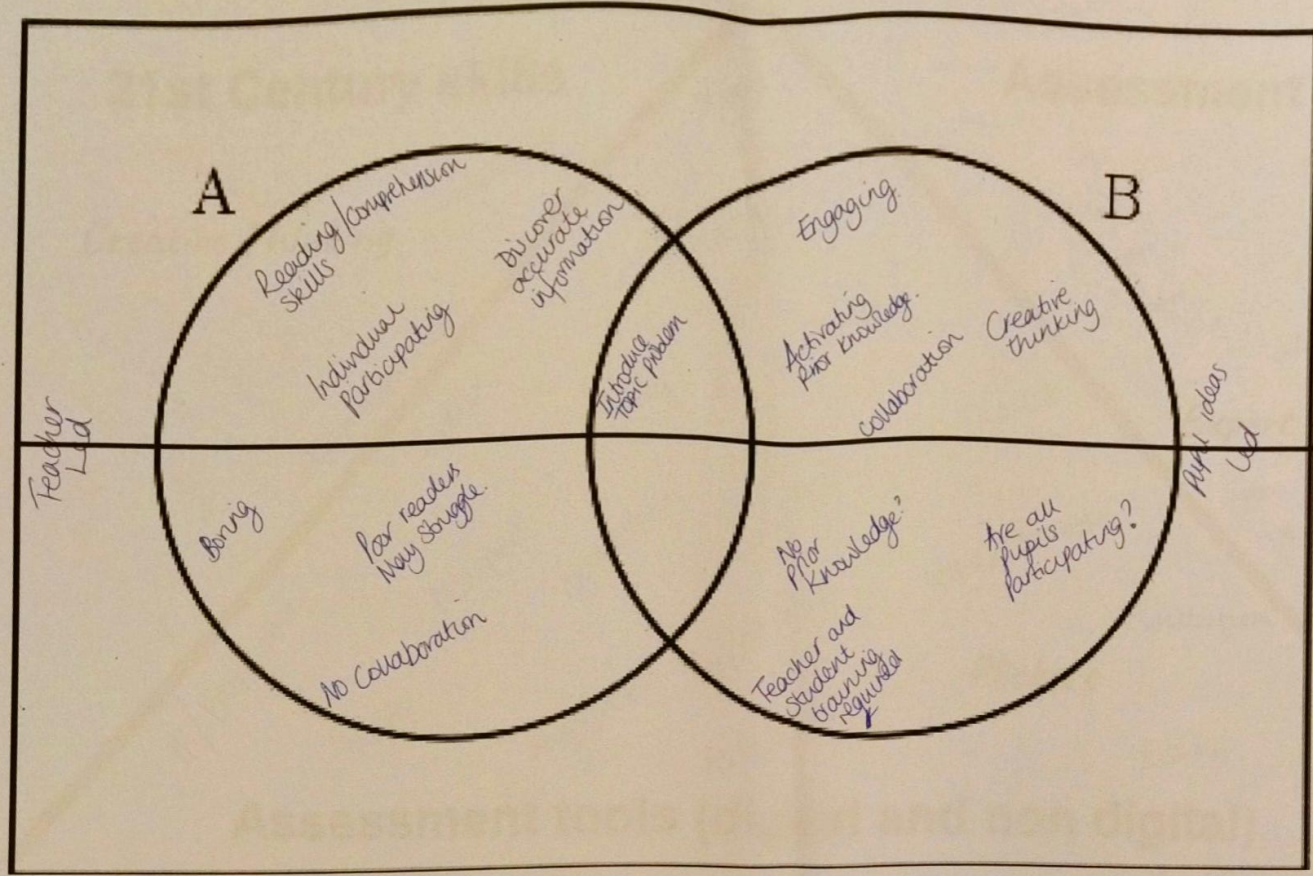 21st Century skills
Assessment
A
B
Reading/comprehension
skills
Discover
accurate
information
Individual
participating
Introduce
Topic problem
Engaging.
Activating
Prior Knowledge.
Creative
thinking
collaboration
Teacher
Led
Pupil ideas
Led
Boring
Poor readers
May Struggle.
No Collaboration
No
Prior
Knowledge?
Are all
pupils
participating?
Teacher and
Student
training
required
Assessment tools (di and non digital)